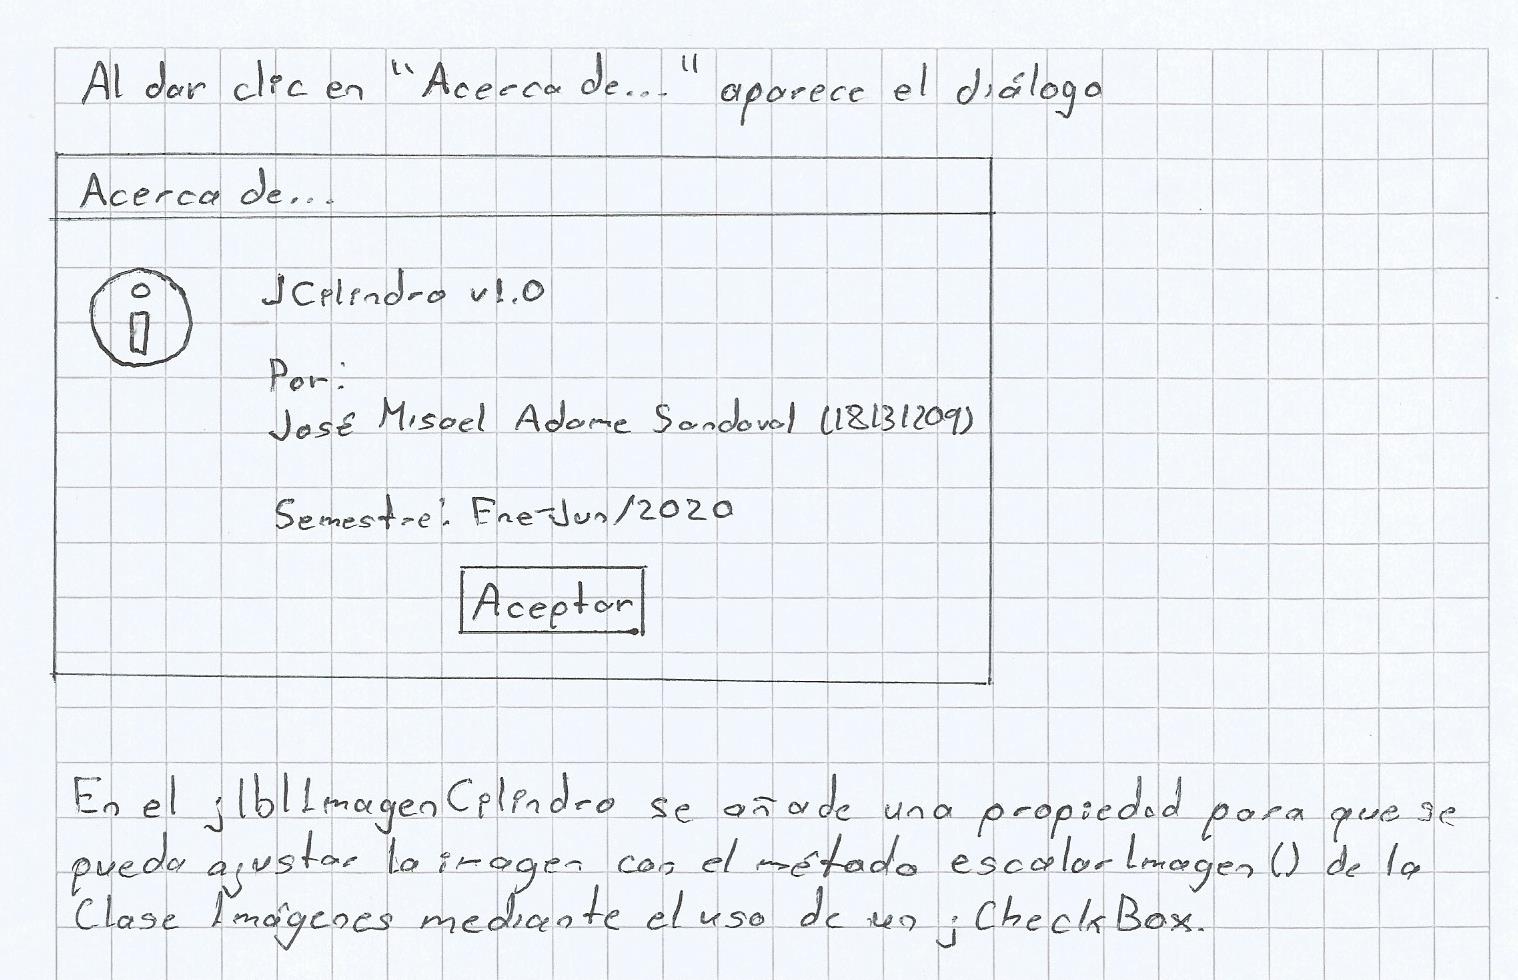 Al dar clic en "Acerca de..." aparece el diálogo
Acerca de...
JCilindro v1.0
Por:
José Misael Adame Sandoval (18131209)
Semestre: Ene-Jun/2020
Aceptar
En el jlblImagenCilindro se añade una propiedad para que se
pueda ajustar la imagen con el método escalarImagen() de la
Clase Imágenes mediante el uso de un jCheckBox.